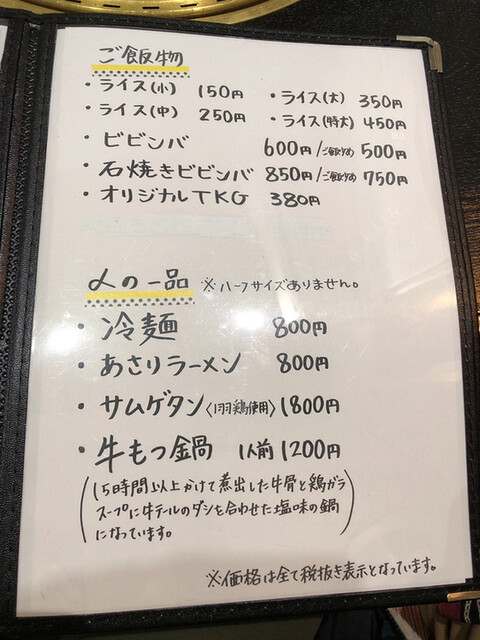 ご飯物
・ライス(小) 150円 ・ライス(大) 350円
・ライス(中) 250円 ・ライス(特大) 450円
・ビビンバ 600円/ご飯少なめ 500円
・石焼きビビンバ 850円/ご飯少なめ 750円
・オリジナルTKG 380円
〆の一品 ※ハーフサイズありません。
・冷麺 800円
・あさりラーメン 800円
・サムゲタン〈1羽鶏使用〉1800円
・牛もつ鍋 1人前 1200円
(15時間以上かけて煮出した牛骨と鶏ガラ
スープに牛テールのダシを合わせた塩味の鍋
になっています。)
※価格は全て税抜き表示となっています。